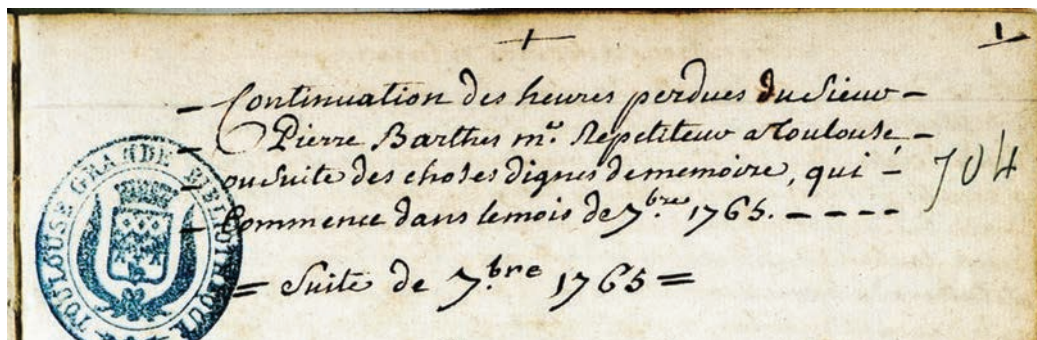 1
- Continuation des heures perdues du Sieur -
- Pierre Barthes m.e Repetiteur a Toulouse -
- ou Suite des choses dignes de memoire, qui -
- Commence dans le mois de 7.bre 1765. - - - -
704
= Suite de 7.bre 1765 =
TOULOUSE GRANDE BIBLIOTHEQUE